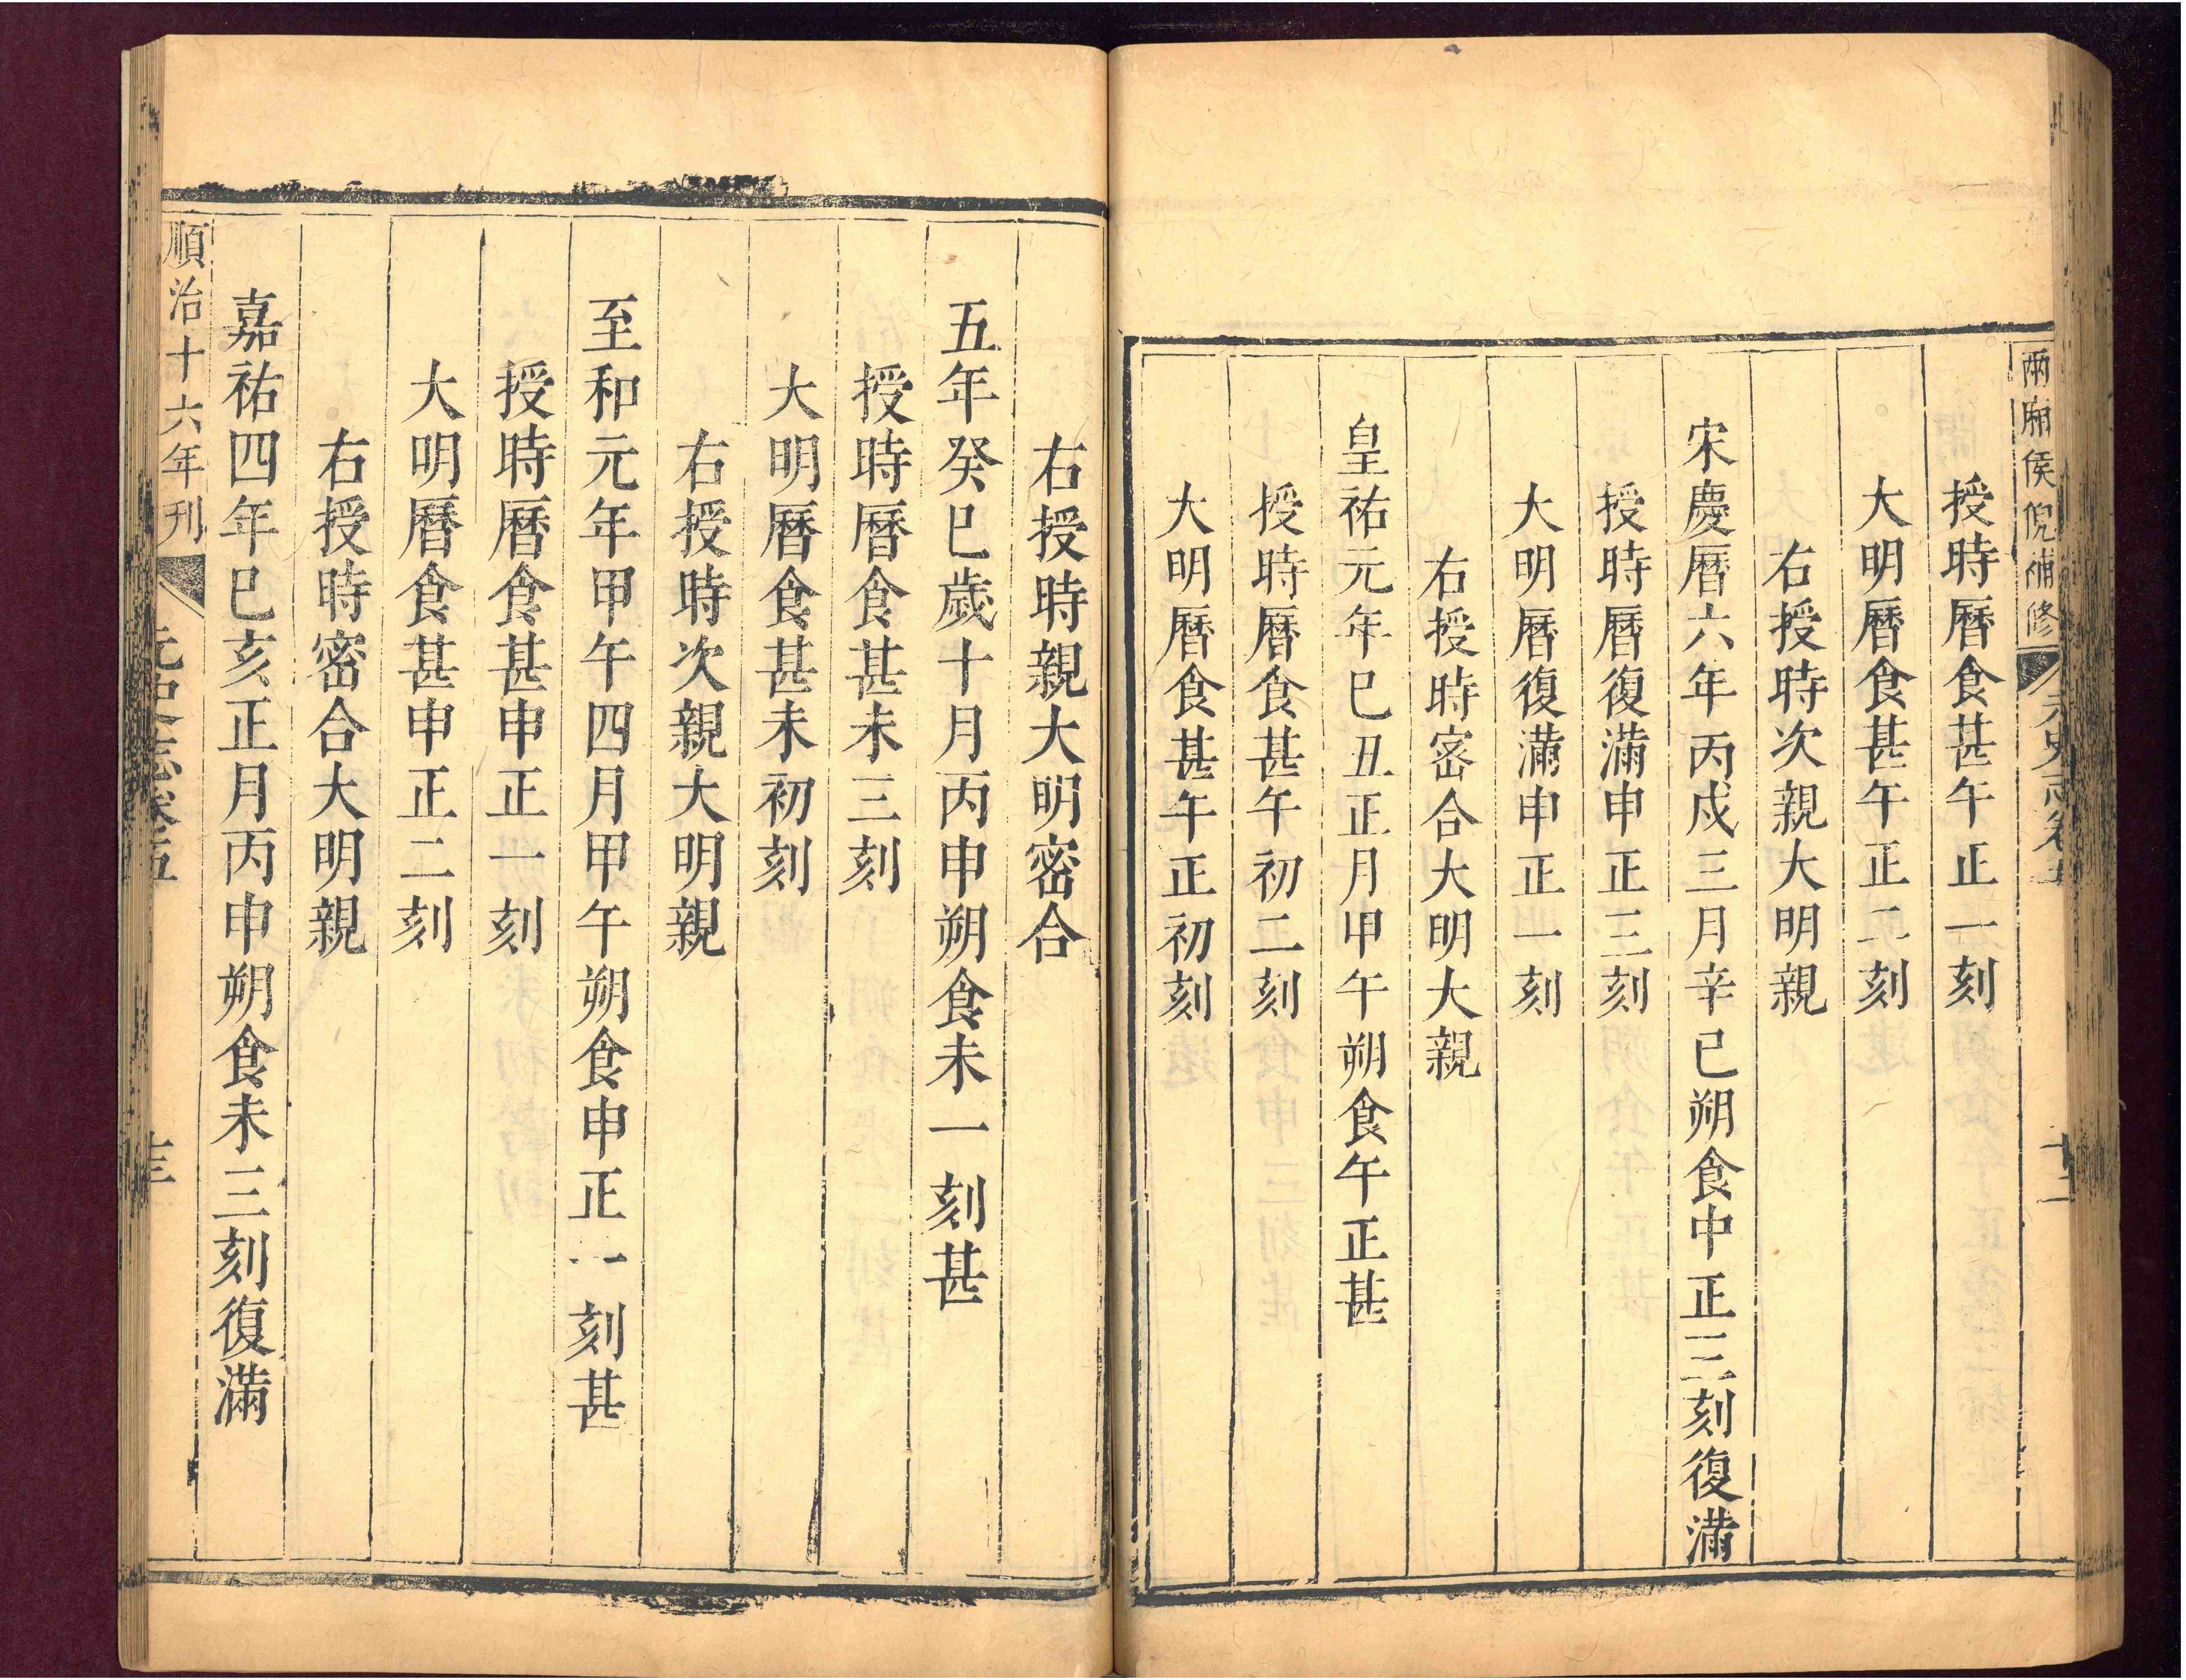 兩廂侯倪補修
元史志卷五
十二
授時曆食甚午正一刻
大明曆食甚午正二刻
右授時次親大明親
宋慶曆六年丙戌三月辛巳朔食申正三刻復滿
授時曆復滿申正三刻
大明曆復滿申正一刻
右授時密合大明大親
皇祐元年巳丑正月甲午朔食午正甚
授時曆食甚午初二刻
大明曆食甚午正初刻
右授時親大明密合
五年癸巳歲十月丙申朔食未一刻甚
授時曆食甚未三刻
大明曆食甚未初刻
右授時次親大明親
至和元年甲午四月甲午朔食申正一刻甚
授時曆食甚申正一刻
大明曆食甚申正二刻
右授時密合大明親
嘉祐四年巳亥正月丙申朔食未三刻復滿
順治十六年刊
元史志卷五